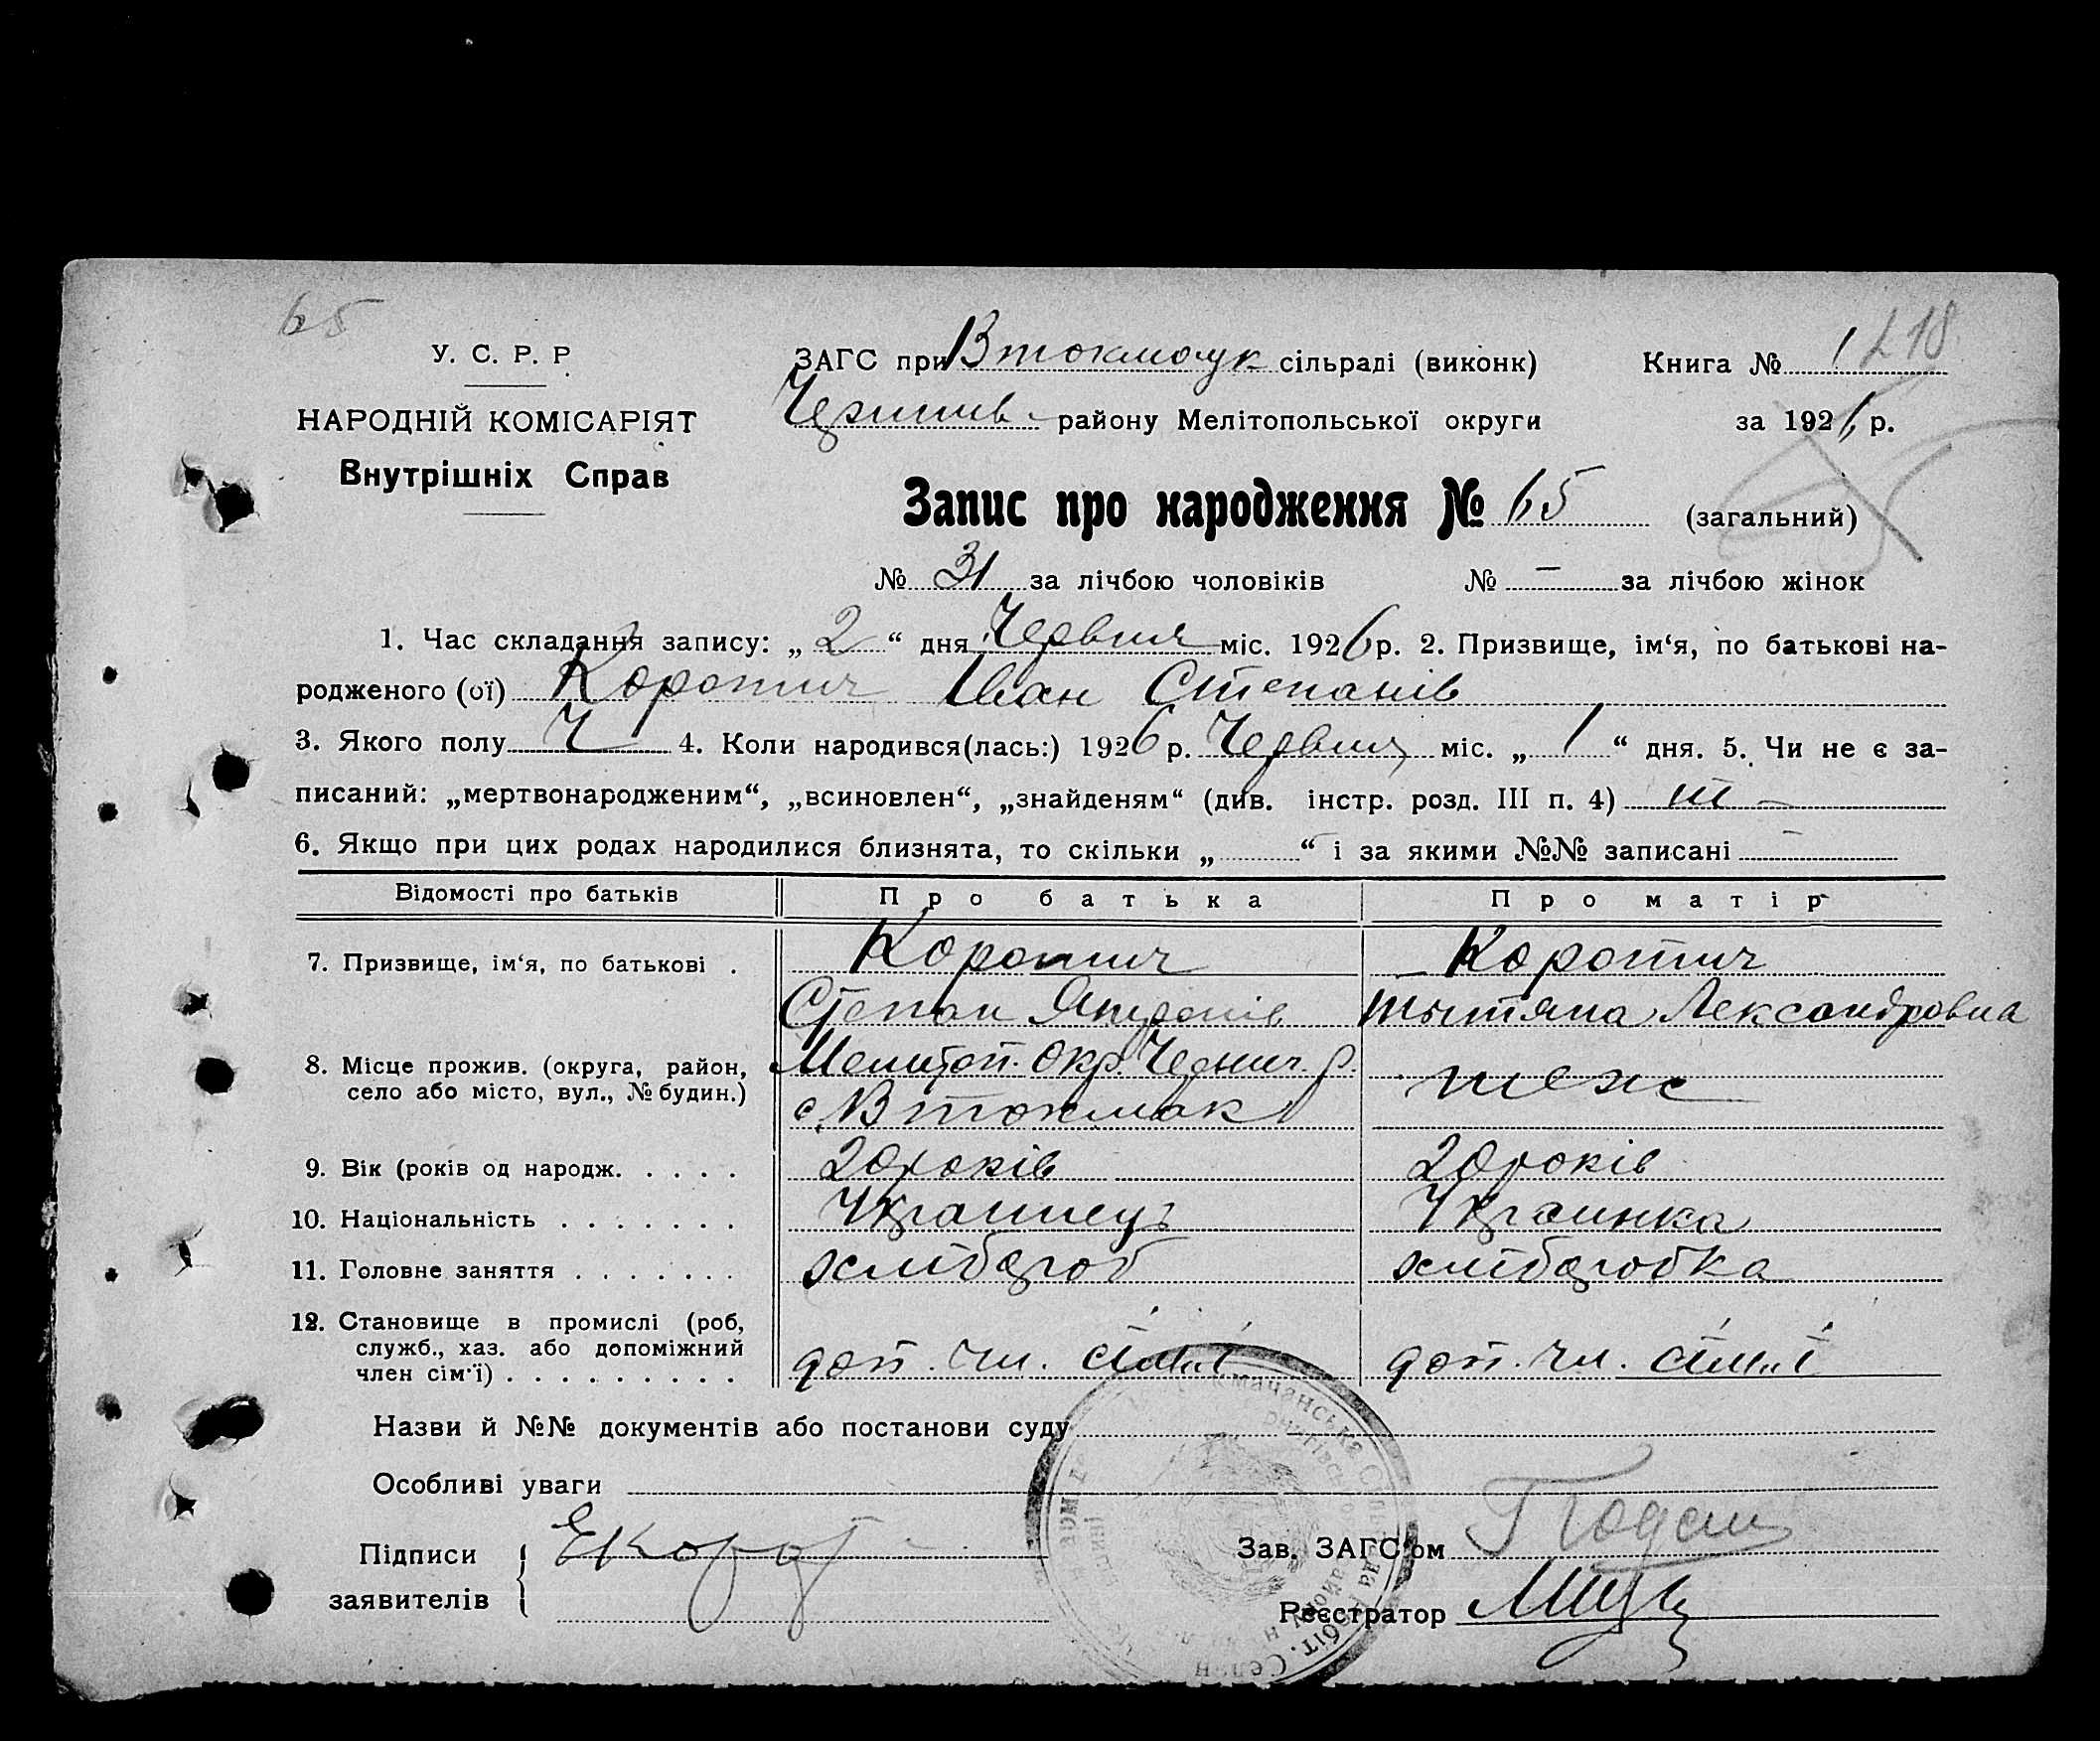 65
У. С. Р. Р.
НАРОДНІЙ КОМІСАРІЯТ
Внутрішніх Справ
ЗАГС при Втокмачук сільраді (виконк)
района Мелітопольської округи
Книга № 1
за 1926 р.
Запис про народження № 65 (загальний)
№ 31 за лічбою чоловіків № — за лічбою жінок
1. Час складання запису: „2“ дня Червня міс. 1926 р. 2. Призвище, ім‘я, по батькові на-
родженого (ої) Коротич Іван Степанів
3. Якого полу Ч 4. Коли народився(лась:) 1926 р. Червня міс. „1“ дня. 5. Чи не є за-
писаний: „мертвонародженим“, „всиновлен“, „знайденям“ (див. інстр. розд. III п. 4) ні —
6. Якщо при цих родах народилися близнята, то скільки „ “ і за якими №№ записані —
Відомості про батьків Про батька Про матір
7. Призвище, ім‘я, по батькові . Коротич Коротич
Степан Тытяна Лександровна
8. Місце прожив. (округа, район, Мелитоп. окр. Черниг. р. теж
село або місто, вул., № будин.) с. Втокмак
9. Вік (років од народж. . . . . 20 років 20 років
10. Національність . . . . . . . Украинець Украинка
11. Головне заняття . . . . . . . хлібороб хліборобка
12. Становище в промислі (роб,
служб., хаз. або допоміжний доп. чл. сімї доп. чл. сімї
член сім‘ї) . . . . . . . . .
Назви й №№ документів або постанови суду
Особливі уваги
Підписи
заявителів
Зав. ЗАГС‘ом
Реєстратор